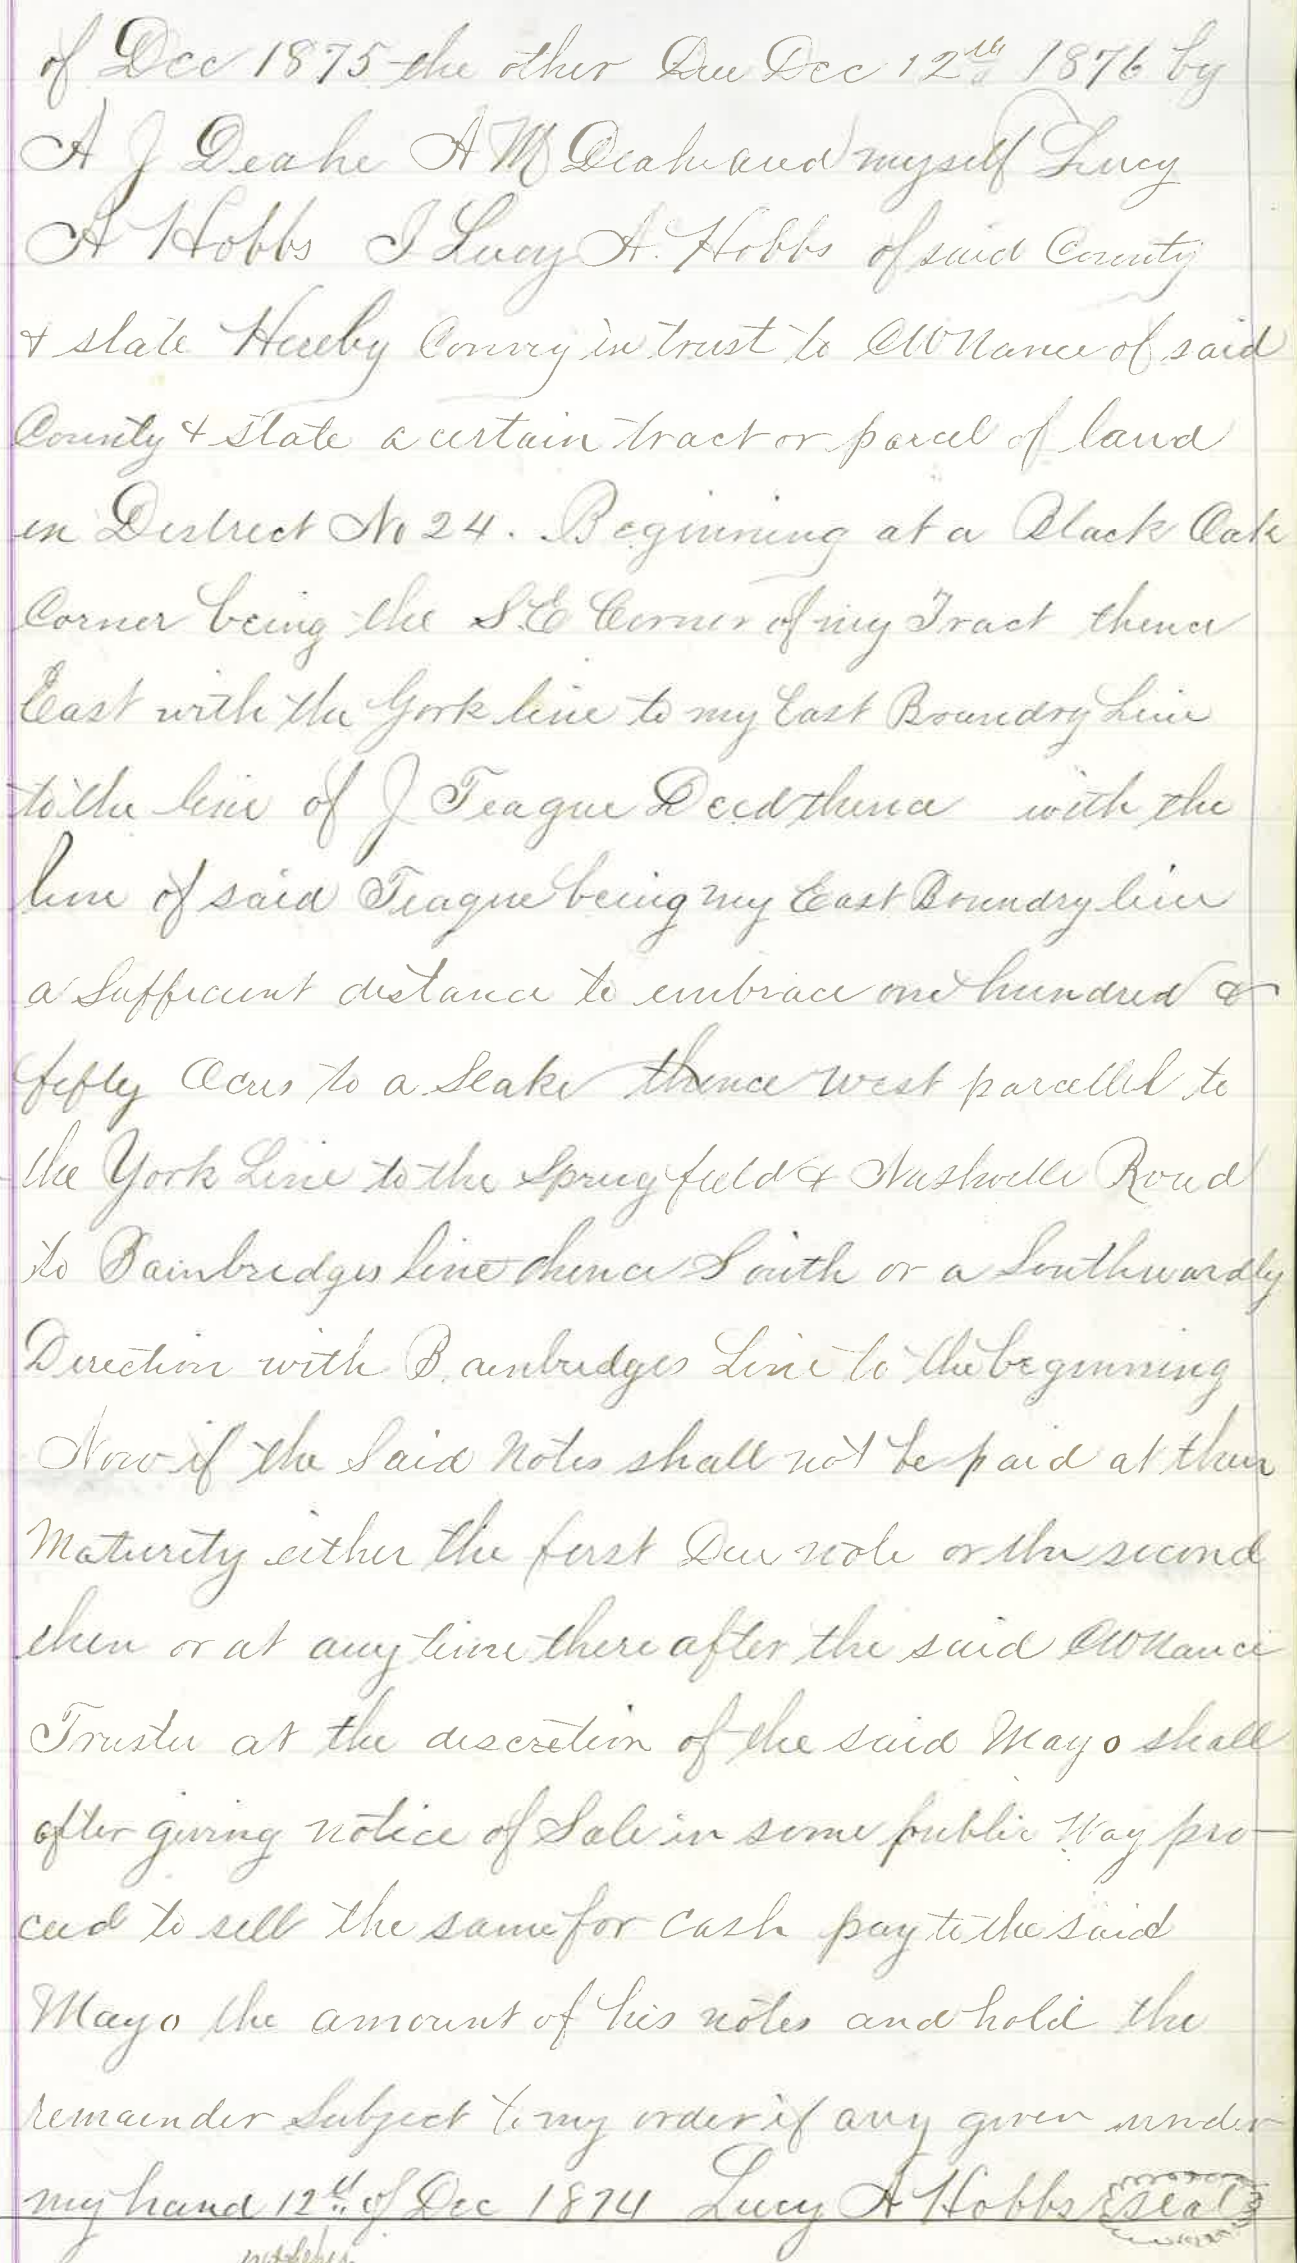 of Dec 1875 the other Due Dec 12th 1876 by
A J Deake A M Deake and myself Lucy
A Hobbs I Lucy A. Hobbs of said County
& state Hereby Convey in trust to CW Nance of said
County & State a certain tract or parcel of land
in District No 24. Beginning at a Black Oak
Corner being the S.E Corner of my Tract thence
East with the York line to my East Boundry Line
to the line of J Teague Decd thence with the
line of said Teague being my East Boundry line
a Sufficient distance to embrace one hundred &
fifty Acres to a Stake thence West parcellel to
the York Line to the Springfield & Nashville Road
to Bainbridges line thence South or a Southwardly
Direction with Bainbridges Line to the beginning
Now if the Said Notes shall not be paid at their
Maturity either the first Due note or the second
then or at any time there after the said CW Nance
Trustee at the discretion of the said Mayo shall
after giving notice of Sale in some public Way pro-
ceed to sell the same for cash pay to the said
Mayo the amount of his notes and hold the
remainder Subject to my order if any given under
my hand 12th of Dec 1874 Lucy A Hobbs seal